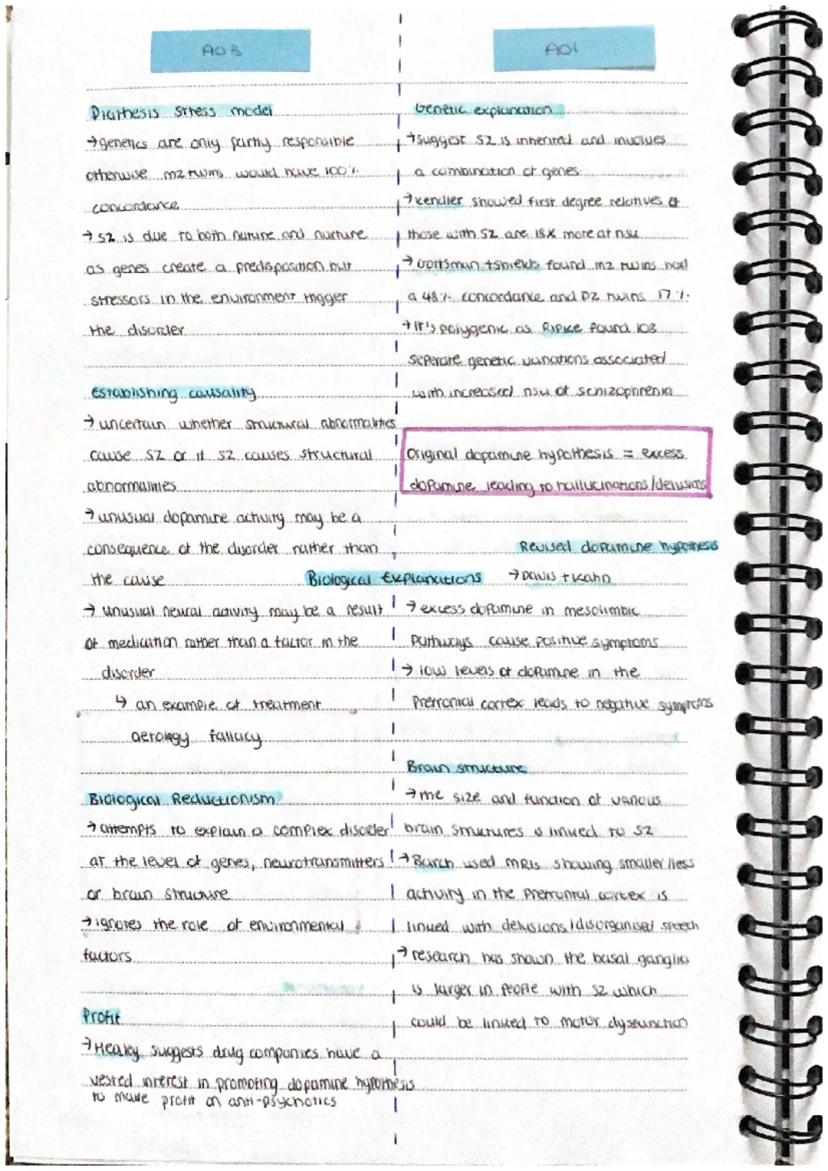 AO3
Diathesis stress model
→ genetics are only partly responsible
otherwise mz twins would have 100%
concordance
→ SZ is due to both nature and nurture
as genes create a predisposition but
stressors in the environment trigger
the disorder
Establishing causality
→ uncertain whether structural abnormalities
cause SZ or if SZ causes structural
abnormalities
→ unusual dopamine activity may be a
consequence of the disorder rather than
the cause
→ unusual neural activity may be a result
of medication rather than a factor in the
disorder
↳ an example of treatment
aerology fallacy
Biological Reductionism
→ attempts to explain a complex disorder
at the level of genes, neurotransmitters
or brain structure
→ ignores the role of environmental
factors
Profit
→ Healey suggests drug companies have a
vested interest in promoting dopamine hypothesis
to make profit on anti-psychotics
Biological Explanations
AO1
Genetic explanation
→ suggest SZ is inherited and involves
a combination of genes
→ Kendler showed first degree relatives of
those with SZ are 18x more at risk
→ Gottsman + Shields found mz twins had
a 48% concordance and DZ twins 17%
→ It's polygenic as Ripke found 108
seperate genetic variations associated
with increased risk of schizophrenia
Original dopamine hypothesis = excess
dopamine leading to hallucinations/delusions
Revised dopamine hypothesis
→ Davis + Kahn
→ excess dopamine in mesolimbic
pathways cause positive symptoms
→ low levels of dopamine in the
prefrontal cortex leads to negative symptoms
Brain structure
→ the size and function of various
brain structures is linked to SZ
→ Barch used MRIs showing smaller/less
activity in the prefrontal cortex is
linked with delusions/disorganised speech
→ research has shown the basal ganglia
is larger in people with SZ which
could be linked to motor dysfunction